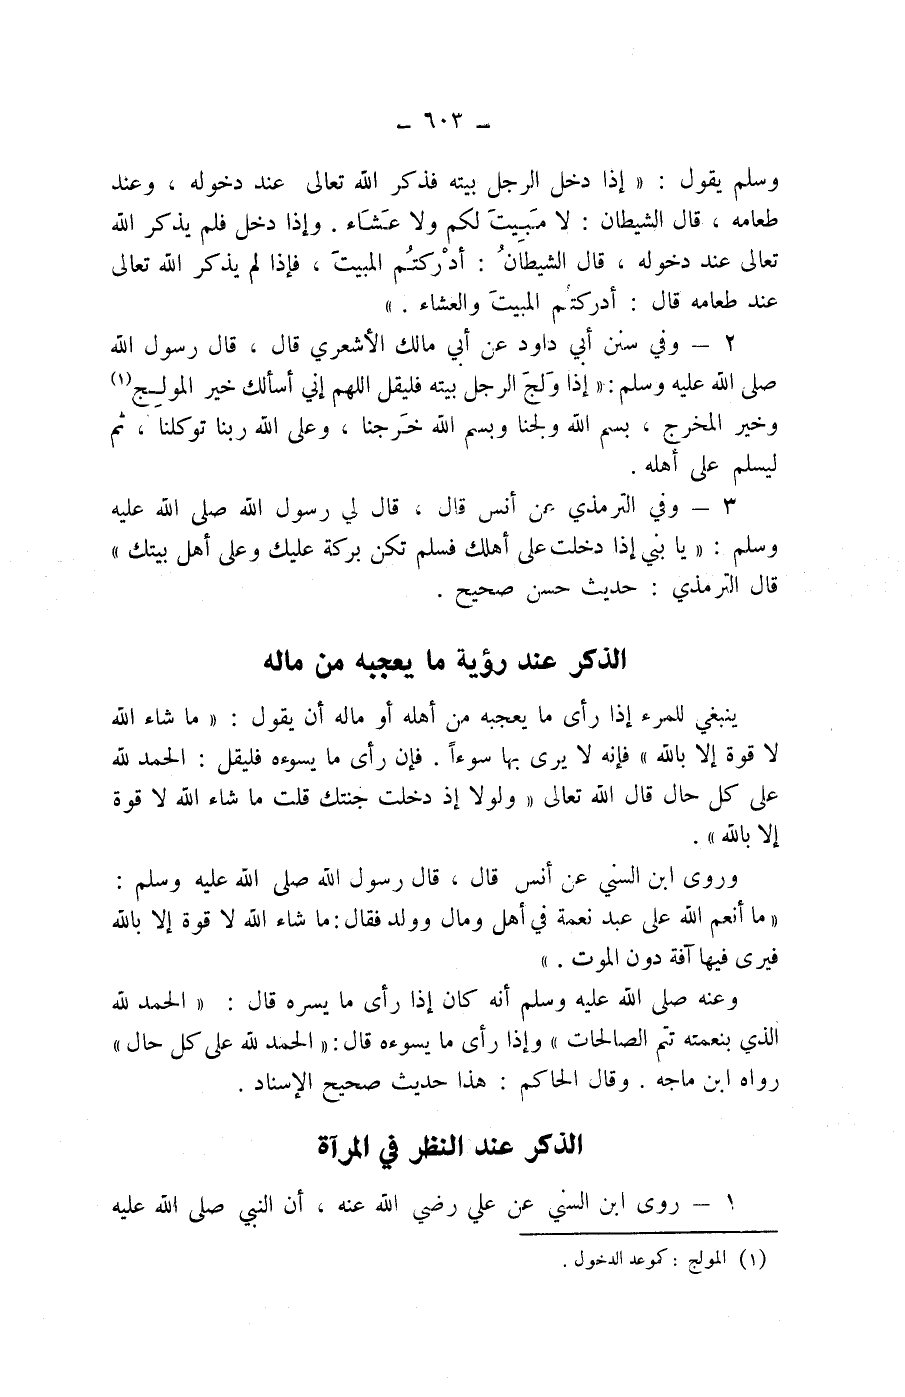 ـ ٦٠٣ ـ
وسلم يقول : « إذا دخل الرجل بيته فذكر الله تعالى عند دخوله ، وعند
طعامه ، قال الشيطان : لا مَبِيتَ لكم ولا عَشَاء . وإذا دخل فلم يذكر الله
تعالى عند دخوله ، قال الشيطانُ : أدْركتُم المبيتَ ، فإذا لم يذكر الله تعالى
عند طعامه قال : أدركتُم المبيتَ والعشاء . »
٢ – وفي سنن أبي داود عن أبي مالك الأشعري قال ، قال رسول الله
صلى الله عليه وسلم : « إذا وَلَجَ الرجل بيته فليقل اللهم إني أسألك خير المولِج(١)
وخير المخرج ، بسم الله ولجنا وبسم الله خَرجنا ، وعلى الله ربنا توكلنا ، ثم
ليسلم على أهله .
٣ – وفي الترمذي عن أنس قال ، قال لي رسول الله صلى الله عليه
وسلم : « يا بني إذا دخلت على أهلك فسلم تكن بركة عليك وعلى أهل بيتك »
قال الترمذي : حديث حسن صحيح .
الذكر عند رؤية ما يعجبه من ماله
ينبغي للمرء إذا رأى ما يعجبه من أهله أو ماله أن يقول : « ما شاء الله
لا قوة إلا بالله » فإنه لا يرى بها سوءاً . فإن رأى ما يسوءه فليقل : الحمد لله
على كل حال قال الله تعالى « ولولا إذ دخلت جنتك قلت ما شاء الله لا قوة
إلا بالله » .
وروى ابن السني عن أنس قال ، قال رسول الله صلى الله عليه وسلم :
« ما أنعم الله على عبد نعمة في أهل ومال وولد فقال : ما شاء الله لا قوة إلا بالله
فيرى فيها آفة دون الموت . »
وعنه صلى الله عليه وسلم أنه كان إذا رأى ما يسره قال : « الحمد لله
الذي بنعمته تتم الصالحات » وإذا رأى ما يسوءه قال : « الحمد لله على كل حال »
رواه ابن ماجه . وقال الحاكم : هذا حديث صحيح الإسناد .
الذكر عند النظر في المرآة
١ – روى ابن السني عن علي رضي الله عنه ، أن النبي صلى الله عليه
(١) المولج : كموعد الدخول .